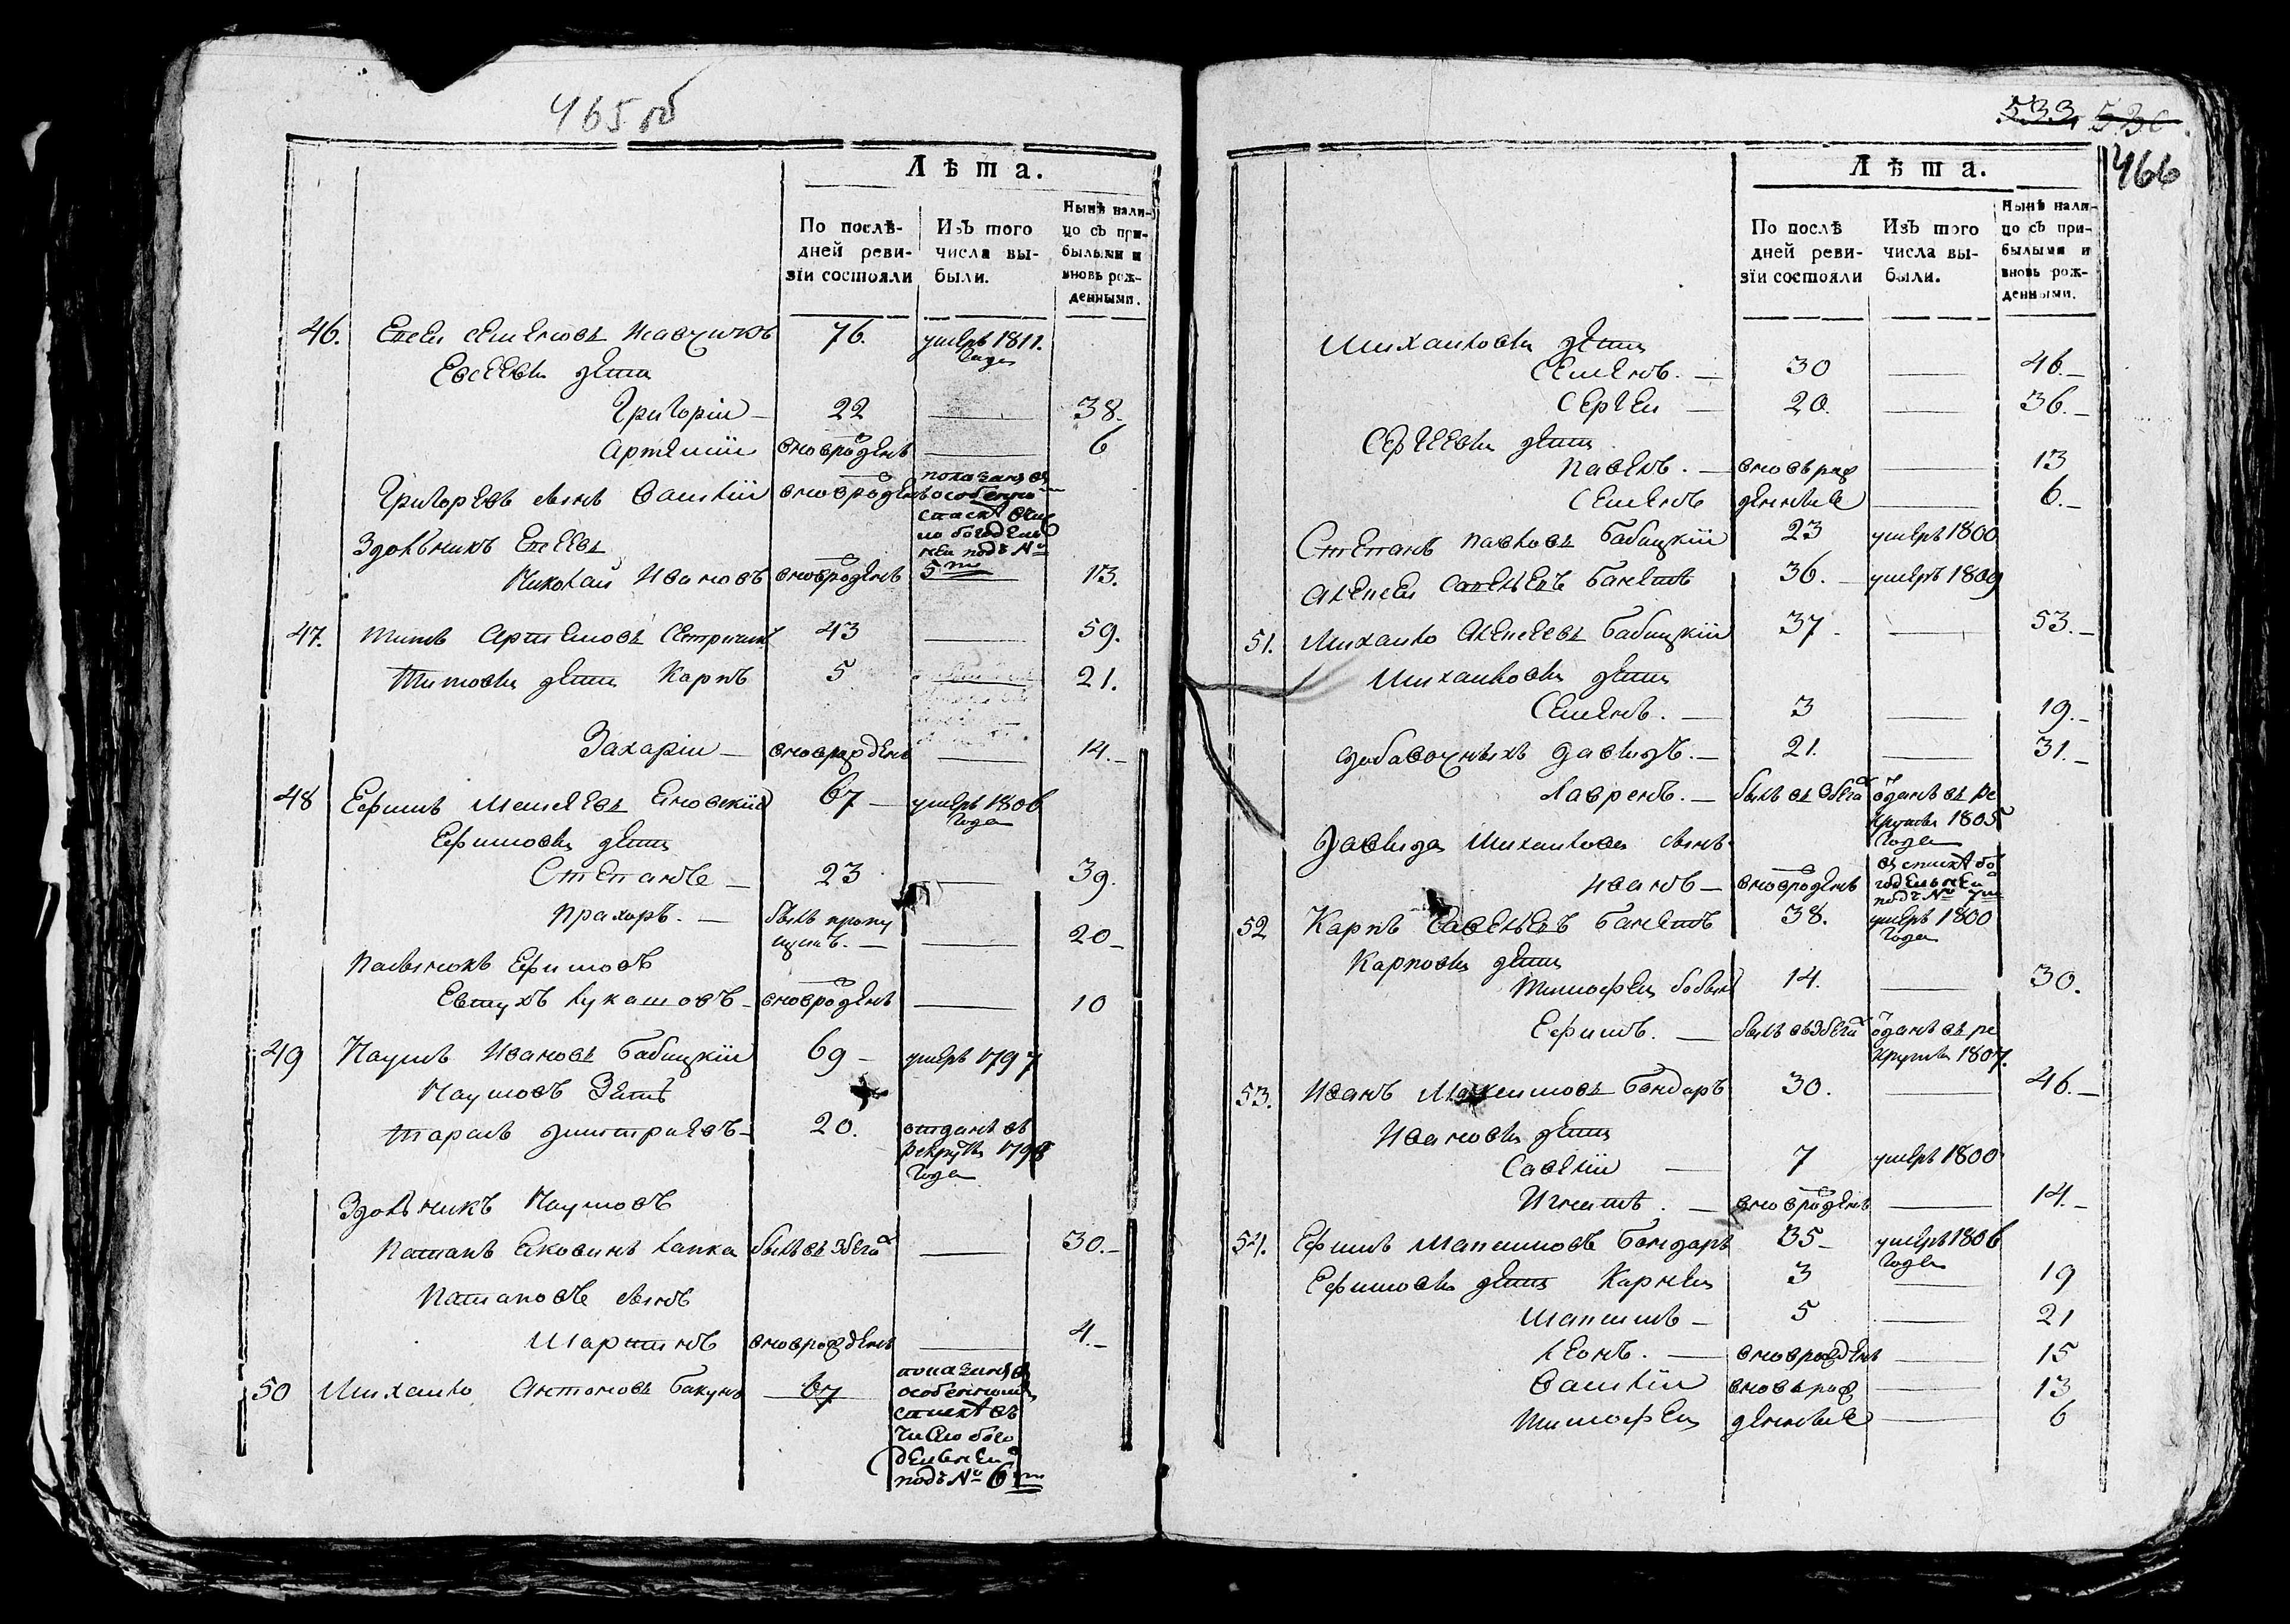 465 об
Лѣта.
По послѣ-
дней реви-
зїи состояли
Изъ того
числа вы-
были.
Нынѣ нали-
цо съ при-
былыми и
вновь рож-
денными.
46. Евсей Семеновъ 76. умеръ 1811.
года
Евсеевы дети
Григорій — 22 — 38.
Артемій вновроденъ — 6
Григорьевъ сынъ Василій вновроденъ показанъ въ
особенно
списке въ чис
ло богодель
ней подъ №
5 м
Здольникъ Евсеевъ
Николай Ивановъ вновроденъ — 13.
47. Титъ Артемовъ 43 — 59.
Титовы дети Карпъ 5 — 21.
Захарій — вноврожденъ — 14.—
48 Ефимъ Яновский 67 — умеръ 1806
года
Ефимовы дети
Степанъ — 23 — 39.
Прахоръ. — былъ пропу
щенъ. — — 20 —
Пасынокъ Ефимовъ
Евтухъ Лукашовъ — вновроденъ — 10
49 Наумъ Ивановъ Бабицкій 69 — умеръ 1797
Наумовъ Зять
Тарасъ Дмитріевъ — 20. отданъ въ
рекруты 1798
года
Здольникъ Наумовъ
Патапъ Яковинъ Лапка былъ въ Збега — 30.—
Патаповъ сынъ
Мартинъ вноврожденъ — 4.—
50 Михайло Антоновъ Бакунъ — 67 показанъ въ
особенномъ
списке въ
число бого
дельней
подъ № 6 м
533 530
466
Лѣта.
По послѣ
дней реви-
зїи состояли
Изъ того
числа вы-
были.
Нынѣ нали-
цо съ при-
былыми и
вновь рож-
денными.
Михайловы дети
Семенъ. — 30 — 46.—
Сергей — 20. — 36.—
Сергеевы дети
Павелъ. — вновь рож — 13
Семенъ денные — 6.—
Степанъ Павловъ Бабицкій 23 умеръ 1800
Алексей Савельевъ 36. — умеръ 1809
51. Михайло Алексеевъ Бабицкій 37 — — 53.—
Михайловы дети
Семенъ. — 3 — 19.—
добавочныхъ Давидъ. — 21. — 31.—
Лавренъ. — былъ въ Збега оданъ въ ре
круты 1805
года
Давида Михайлова сынъ
Иванъ — вновроденъ въ списке бо
годельней
подъ № 7 м
52 Карпъ Савельевъ 38. умеръ 1800
года
Карповы дети
Тимофей 14. — 30.
Ефимъ. — былъ въ Збега оданъ въ ре
круты 1807.
53. Иванъ Максимовъ Бондаръ 30. — 46.—
Ивановы дети
Савелій — 7 умеръ 1800
Игнатъ. — вновроденъ — 14.—
54. Ефимъ Максимовъ Бондаръ 35 — умеръ 1806
года
Ефимовы дети Карней 3 — 19
Максимъ — 5 — 21
Леонъ. — вноврожденъ — 15
Василій вновь рож — 13
Тимофей денные — 6